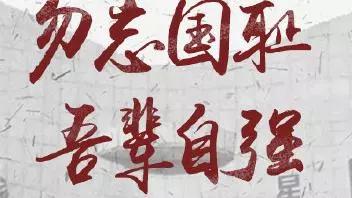 勿忘国耻
吾辈自强